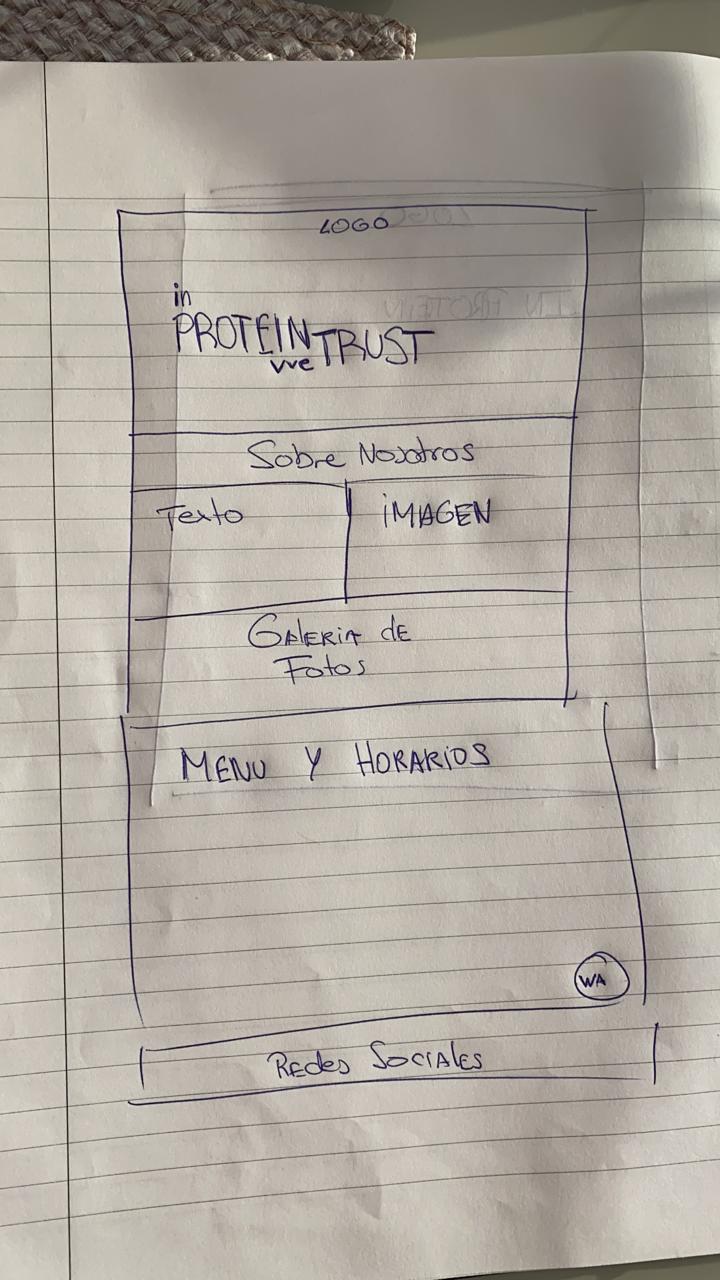 LOGO
in
PROTEIN TRUST
we
Sobre Nosotros
Texto
iMAGEN
GALERiA dE
Fotos
MENU Y HORARIOS
WA
REdes SOCIALES